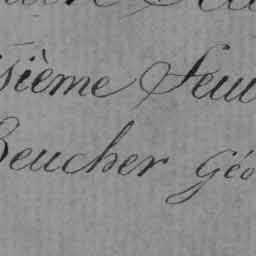 sième Feui
Beucher Géo